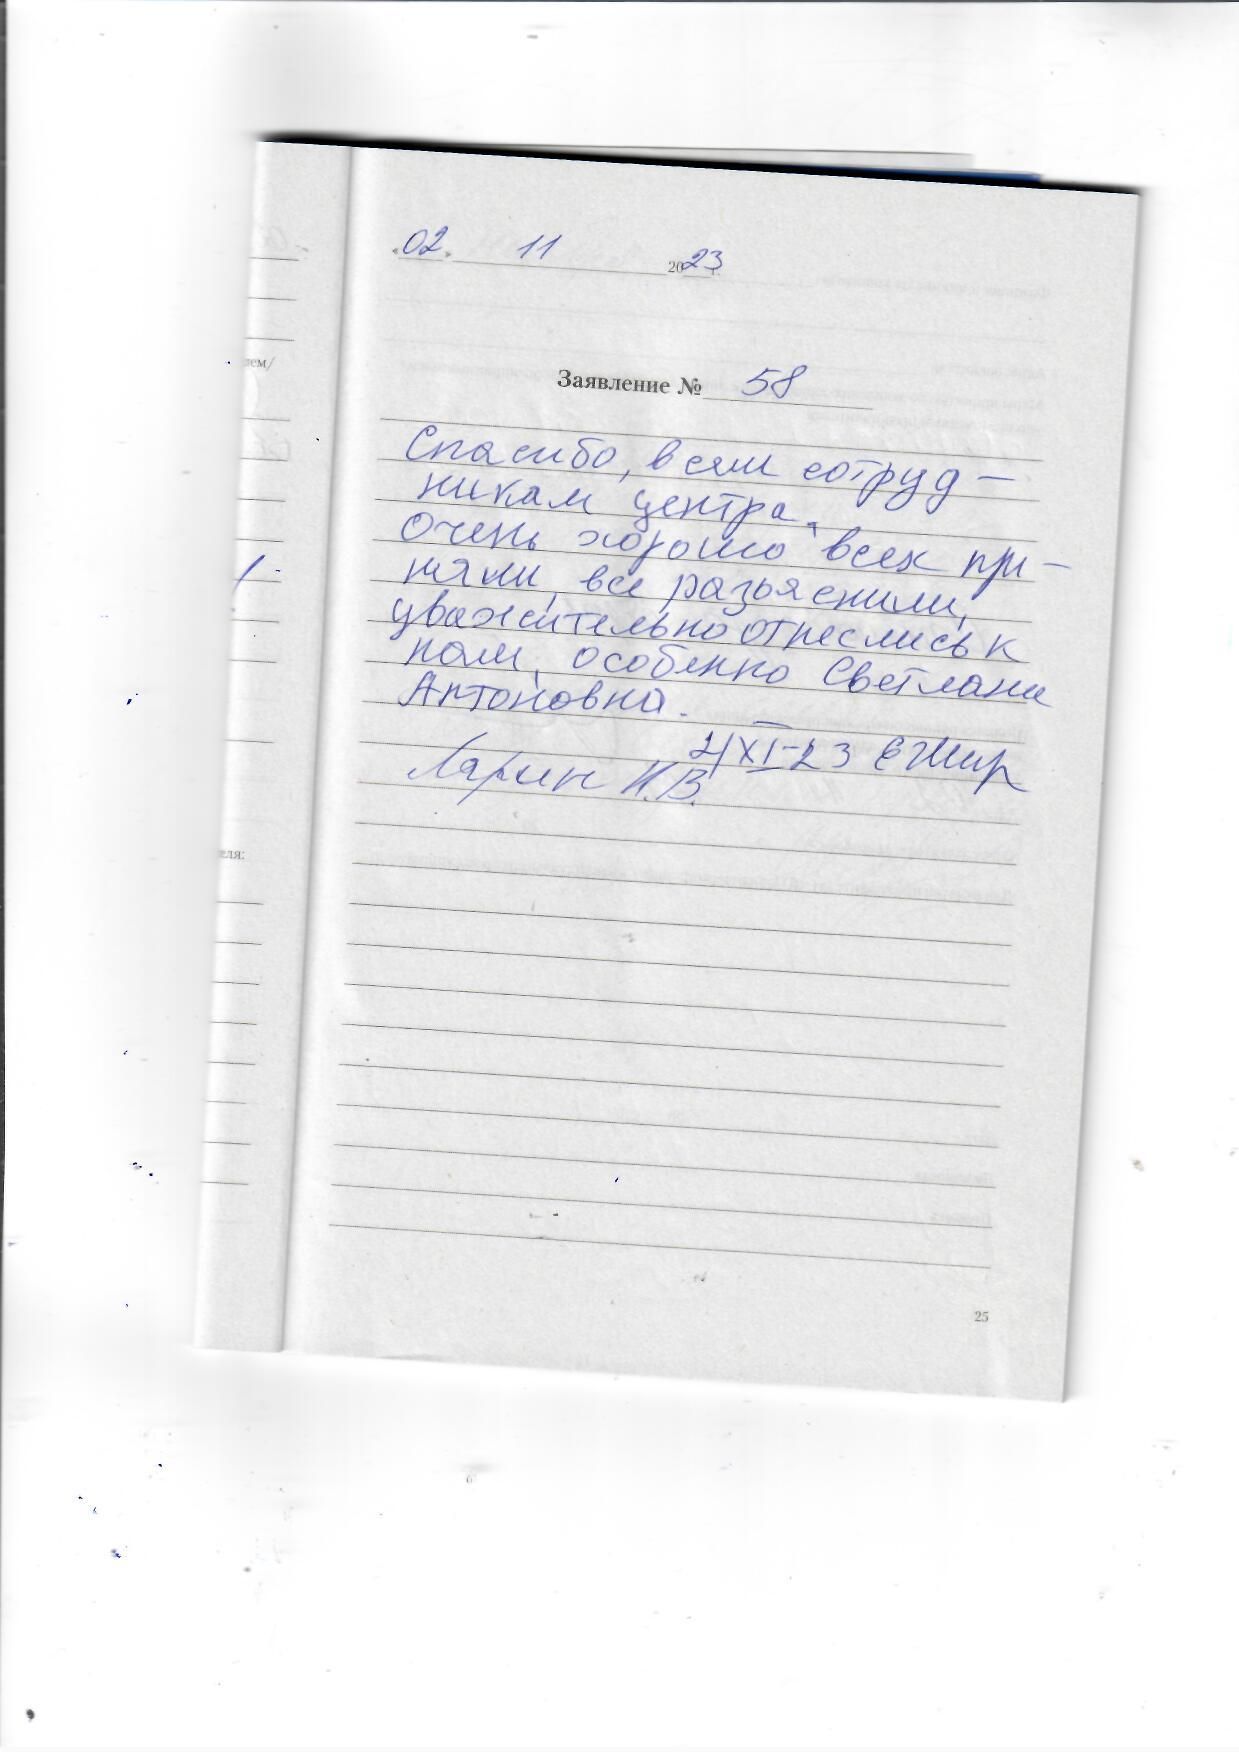 «02» 11 2023 г.
Заявление № 58
Спасибо, всем сотруд-
никам центра,
очень хорошо всех при-
няли, все разъяснили,
уважительно отнеслись к
нам, особенно Светлана
Антоновна.
2/XI-23
Ларин И.В.
лем/
еля:
25